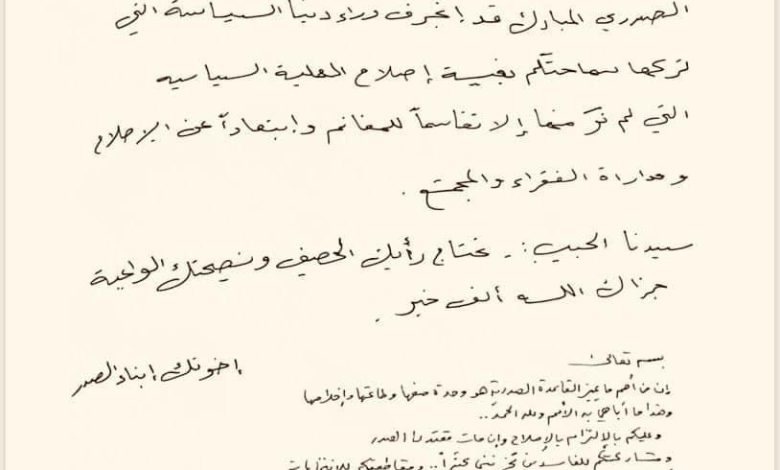 الصدري المبارك قد إنجرف وراء دنيا السياسة التي
تركها سماحتكم بغية إصلاح العملية السياسية
التي لم نرَ منها إلا تقاسماً للمغانم وإبتعاداً عن الإصلاح
ومداراة الفقراء والمجتمع .
سيدنا الحبيب :. نحتاج رأيك الحصيف ونصيحتك الواعية
جزاك الله ألف خير .
إخوتك إبناء الصدر
بسمه تعالى
إن من أهم ما يميز القاعدة الصدرية هو وحدة صفها وطاعتها وإخلاصها
وهذا ما أباهي به الأمم ولله الحمد ..
وعليكم بالإلتزام بالإصلاح وإن مات مقتدى الصدر
ومشاركتكم للفاسدين تحزنني كثيراً .. ومقاطعتكم للإنتخابات